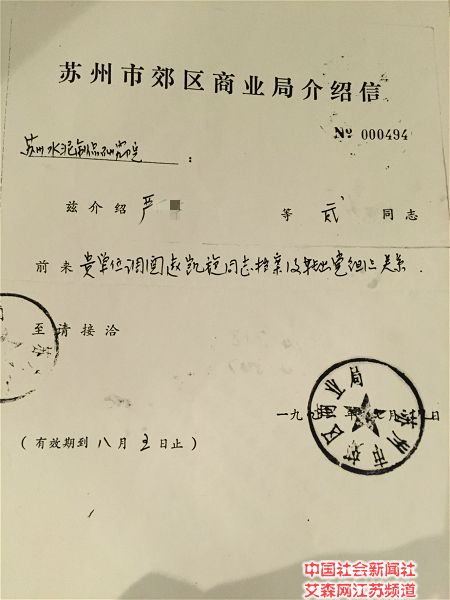 苏州市郊区商业局介绍信
№ 000494
苏州水泥制品研究院：
兹介绍 严 等 贰 同志
前来 贵单位调阅赵凯旋同志档案及转出党组织关系.
至请接洽
一九 年 月 日
(有效期到八月五日止)
苏州市郊区商业局
中国社会新闻社
艾森网江苏频道